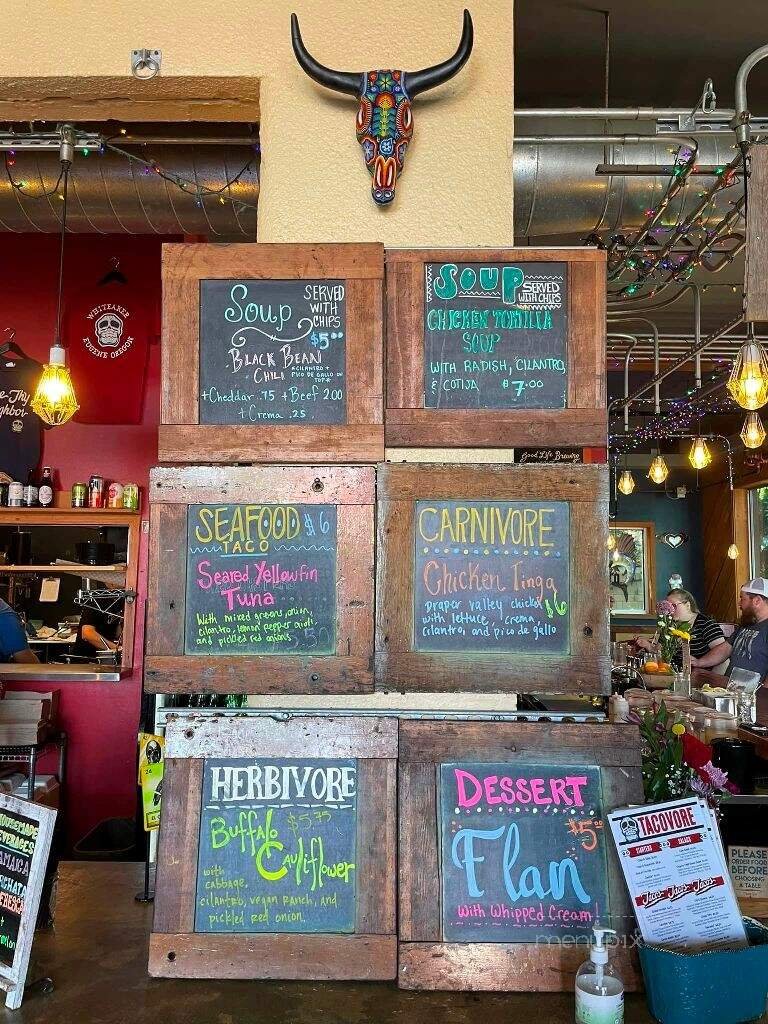 WHITEAKER
EUGENE OREGON
Soup
SERVED
WITH
CHIPS
$5.00
BLACK BEAN
CHILI
*CILANTRO +
PICO DE GALLO ON
TOP*
+Cheddar .75 +Beef 2.00
+Crema .25
SOUP
SERVED
WITH CHIPS
CHICKEN TORTILLA
SOUP
WITH RADISH, CILANTRO,
& COTIJA $7.00
Good Life Brewing
SEAFOOD $6
TACO
Seared Yellowfin
Tuna
With mixed greens, onion,
cilantro, lemon pepper aioli,
and pickled red onions
CARNIVORE
Chicken Tinga
$6
Draper Valley chicken
with lettuce, crema,
cilantro, and pico de gallo
HERBIVORE
$5.75
Buffalo
Cauliflower
with
cabbage,
cilantro, vegan ranch, and
pickled red onion.
DESSERT
$5.00
Flan
with Whipped Cream!
HOUSEMADE
BEVERAGES
JAMAICA
HORCHATA
TACOVORE
STARTERS
SALADS
Tacos Tacos Tacos
PLEASE
ORDER FOOD
BEFORE
CHOOSING
A TABLE
menupix